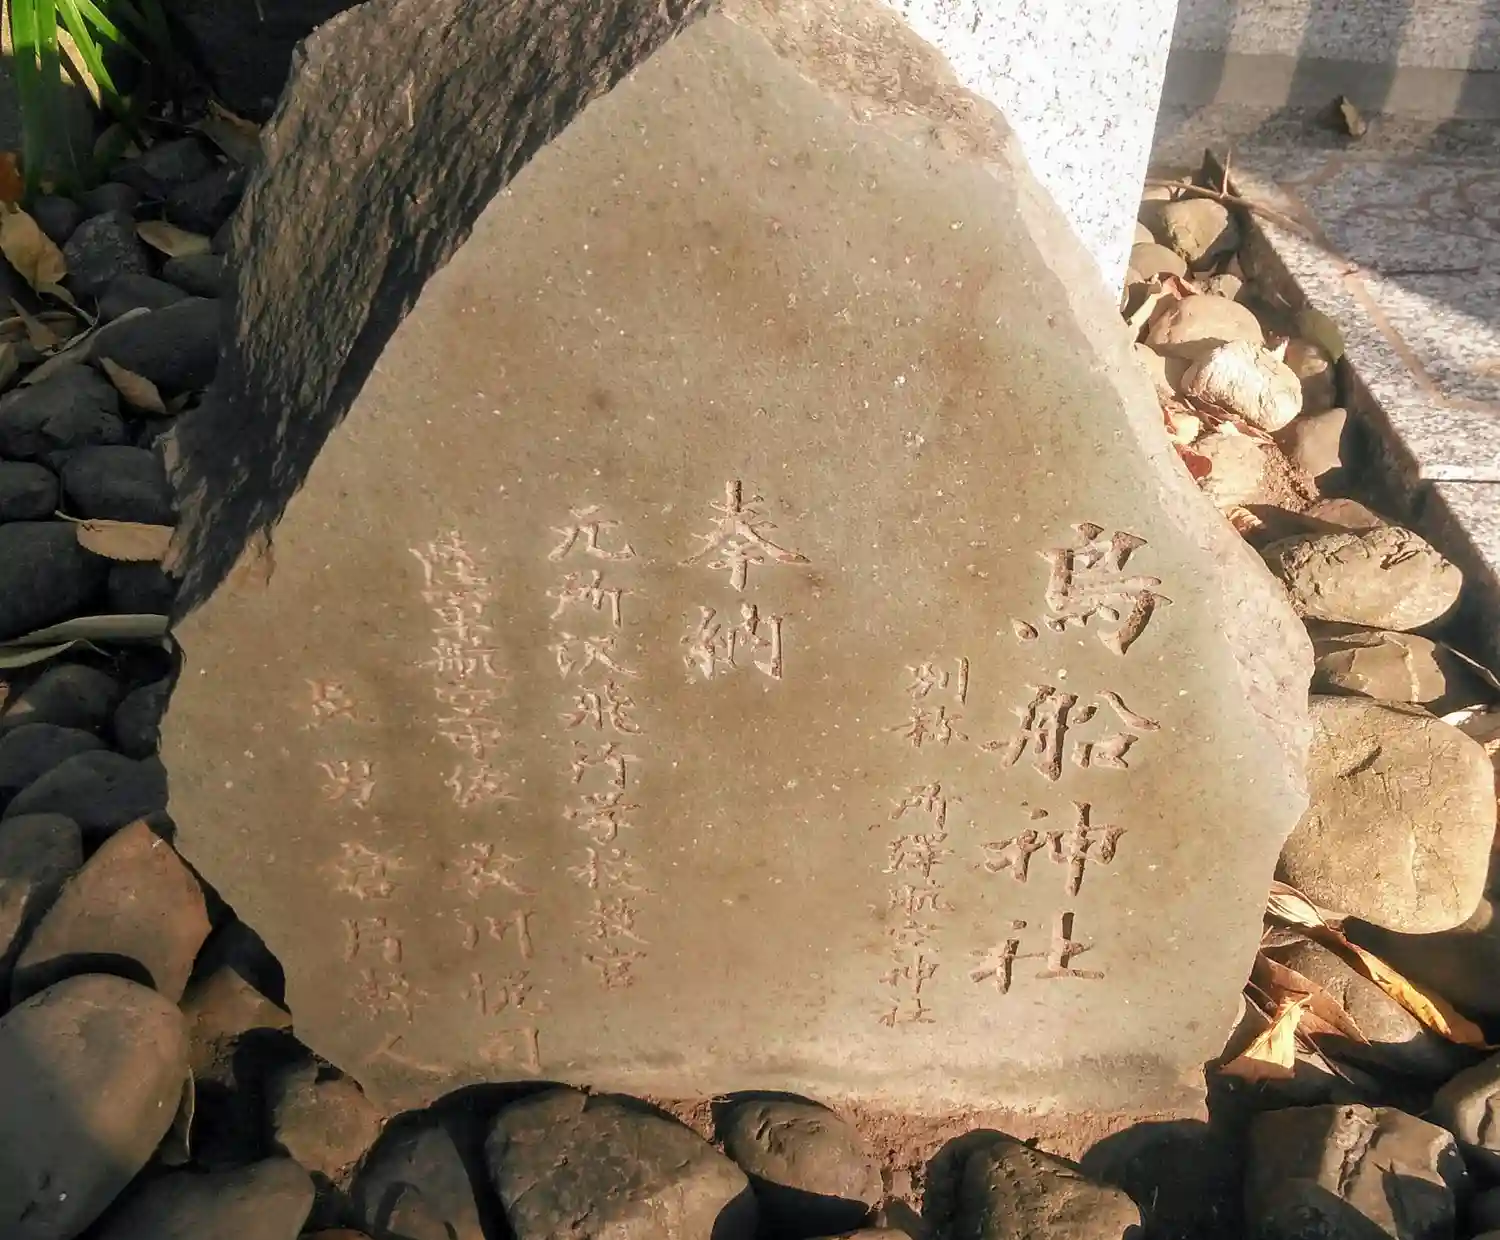 鳥船神社
別称 所澤航空神社
奉納
元所沢飛行学校教官
陸軍航空中佐 
長男 人